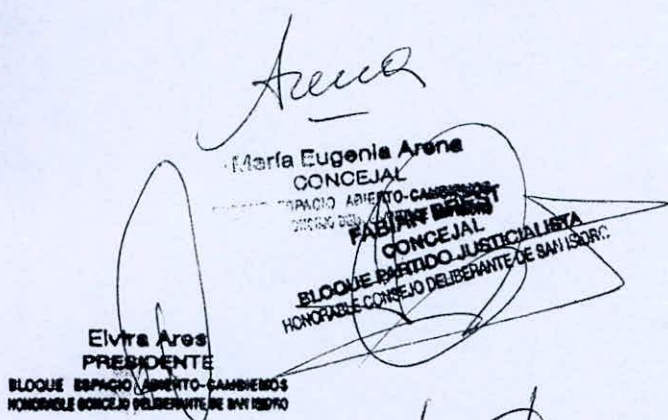 Arena
María Eugenia Arena
CONCEJAL
ESPACIO ABIERTO-CAMBIEMOS
FABIAN BREST
CONCEJAL
BLOQUE PARTIDO JUSTICIALISTA
HONORABLE CONSEJO DELIBERANTE DE SAN ISIDRO
Elvira Ares
PRESIDENTE
BLOQUE ESPACIO ABIERTO-CAMBIEMOS
HONORABLE CONCEJO DELIBERANTE DE SAN ISIDRO